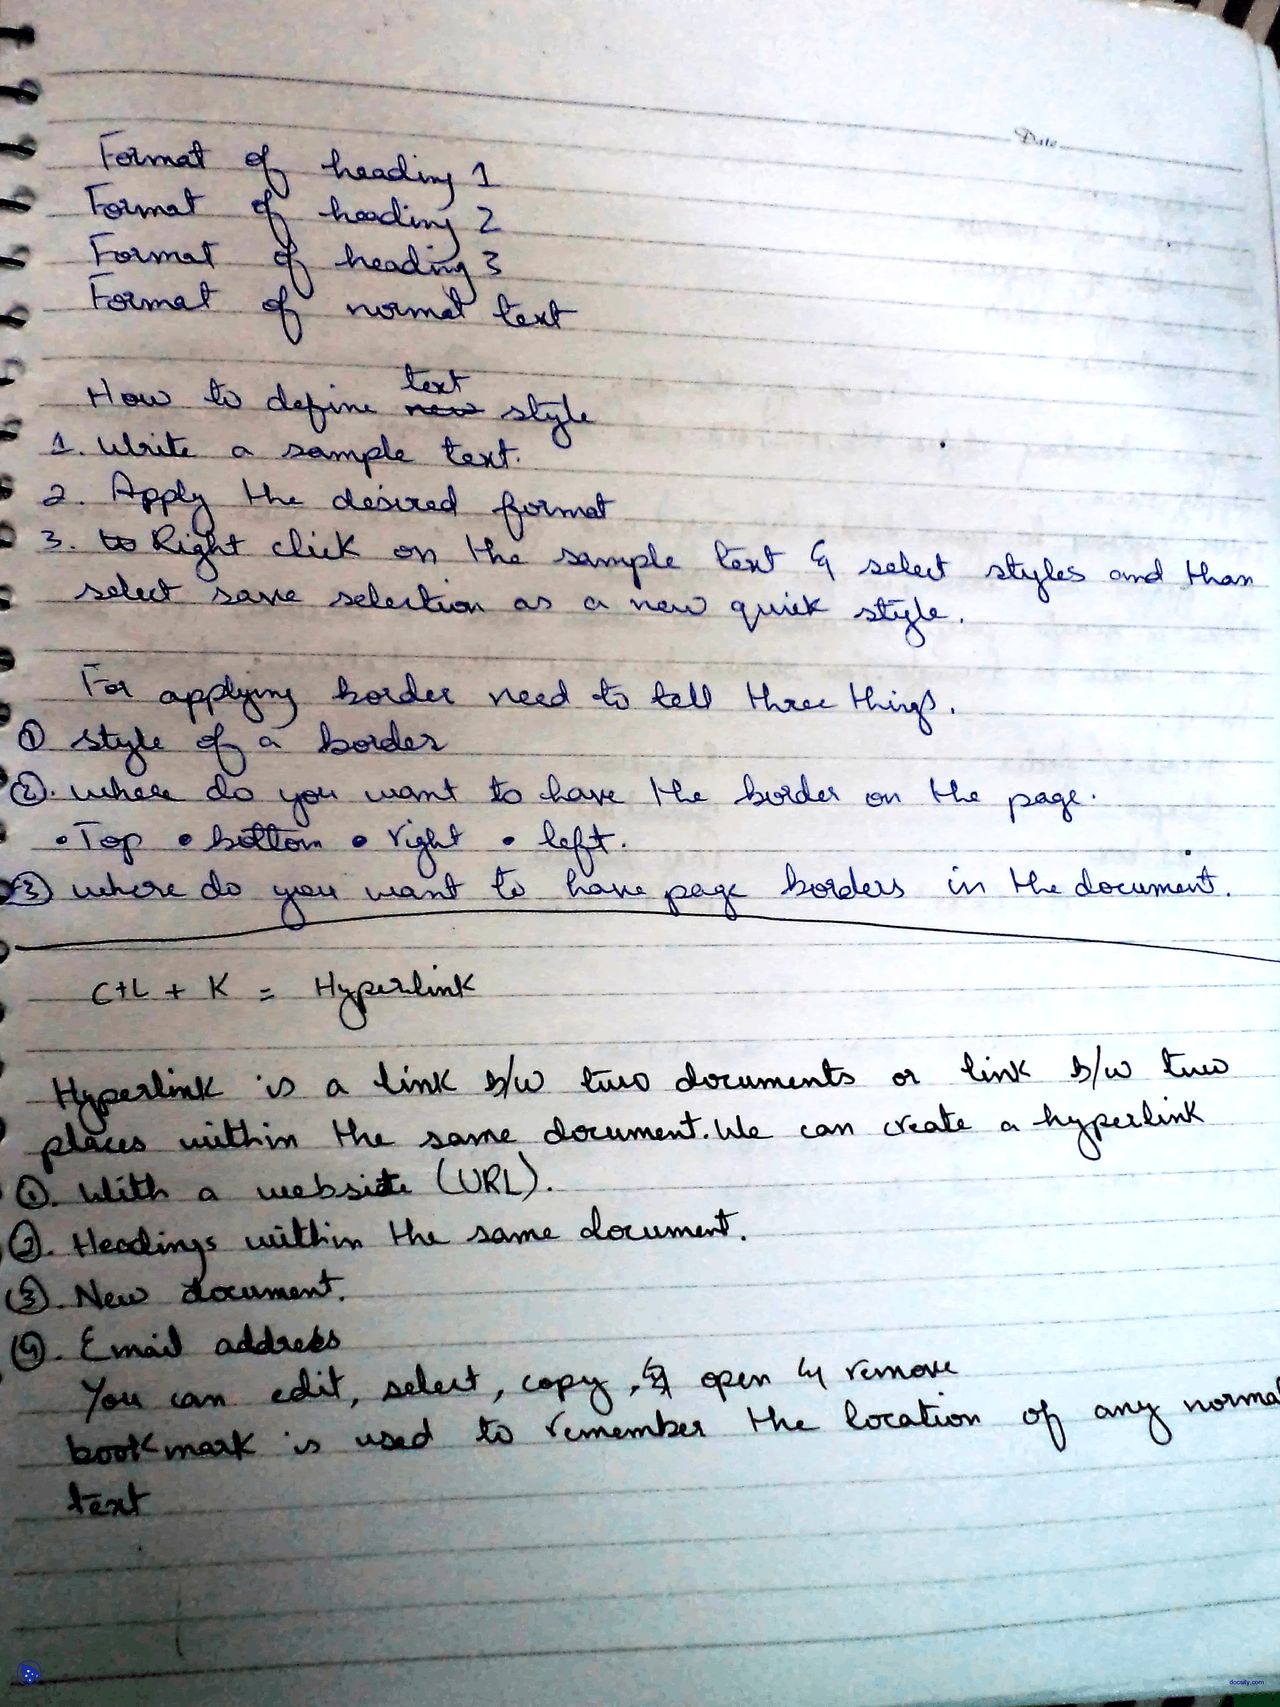 Date
Format of heading 1
Format of heading 2
Format of heading 3
Format of normal text
How to define new text style
1. Write a sample text.
2. Apply the desired format
3. to Right click on the sample text & select styles and than
select save selection as a new quick style.
For applying border need to tell three things.
① style of a border
②. where do you want to have the border on the page.
• Top • bottom • right • left.
③ where do you want to have page borders in the document.
C+L + K = Hyperlink
Hyperlink is a link b/w two documents or link b/w two
places within the same document. We can create a hyperlink
①. With a website (URL).
②. Headings within the same document.
③. New document.
④. Email address
You can edit, select, copy, & open & remove
bookmark is used to remember the location of any normal
text
docsity.com